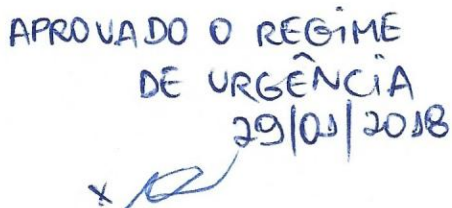 APROVADO O REGIME
DE URGÊNCIA
29/01/2018
x